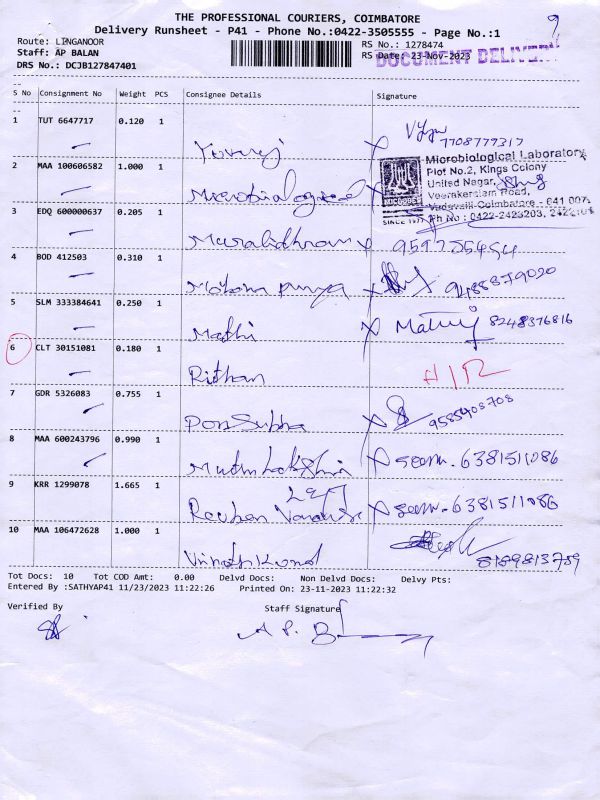 THE PROFESSIONAL COURIERS, COIMBATORE
Delivery Runsheet - P41 - Phone No.:0422-3505555 - Page No.:1
9
Route: LINGANOOR
RS No.: 1278474
Staff: AP BALAN
RS Date: 23-Nov-2023
DOCUMENT DELIVERY
DRS No.: DCJB127847401
S No Consignment No Weight PCS Consignee Details Signature
1 TUT 6647717 0.120 1
Yuvraj X 7708777317
Microbiological Laboratory
Plot No.2, Kings Colony
United Nagar,
Veerakeralam Road,
Vadavalli-Coimbatore - 641 007.
SINCE 1977 Ph No : 0422-2423203,
2 MAA 100606582 1.000 1
Microbiological X
3 EDQ 600000637 0.205 1
Muralidharan X
4 BOD 412503 0.310 1
Mohana Priya X 9488879020
5 SLM 333384641 0.250 1
Mathi X 8248376816
6 CLT 30151081 0.180 1
Rithan
7 GDR 5326083 0.755 1
Ponsubha X 9585408708
8 MAA 600243796 0.990 1
X seem. 6381511086
9 KRR 1299078 1.665 1
Reuben X seem. 6381511086
10 MAA 106472628 1.000 1
8189813759
Tot Docs: 10 Tot COD Amt: 0.00 Delvd Docs: Non Delvd Docs: Delvy Pts:
Entered By :SATHYAP41 11/23/2023 11:22:26 Printed On: 23-11-2023 11:22:32
Verified By Staff Signature